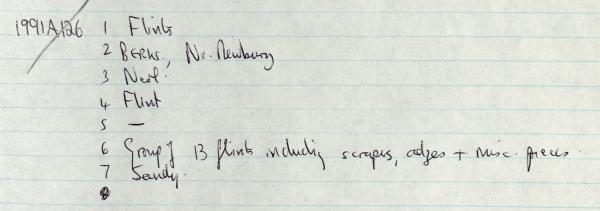 1991A126 1 Flints
2 BERKS, Nr. Newbury
3 Neol.
4 Flint
5 —
6 Group of 13 flints including scrapers, edges + misc. pieces.
7 Sandy.
8